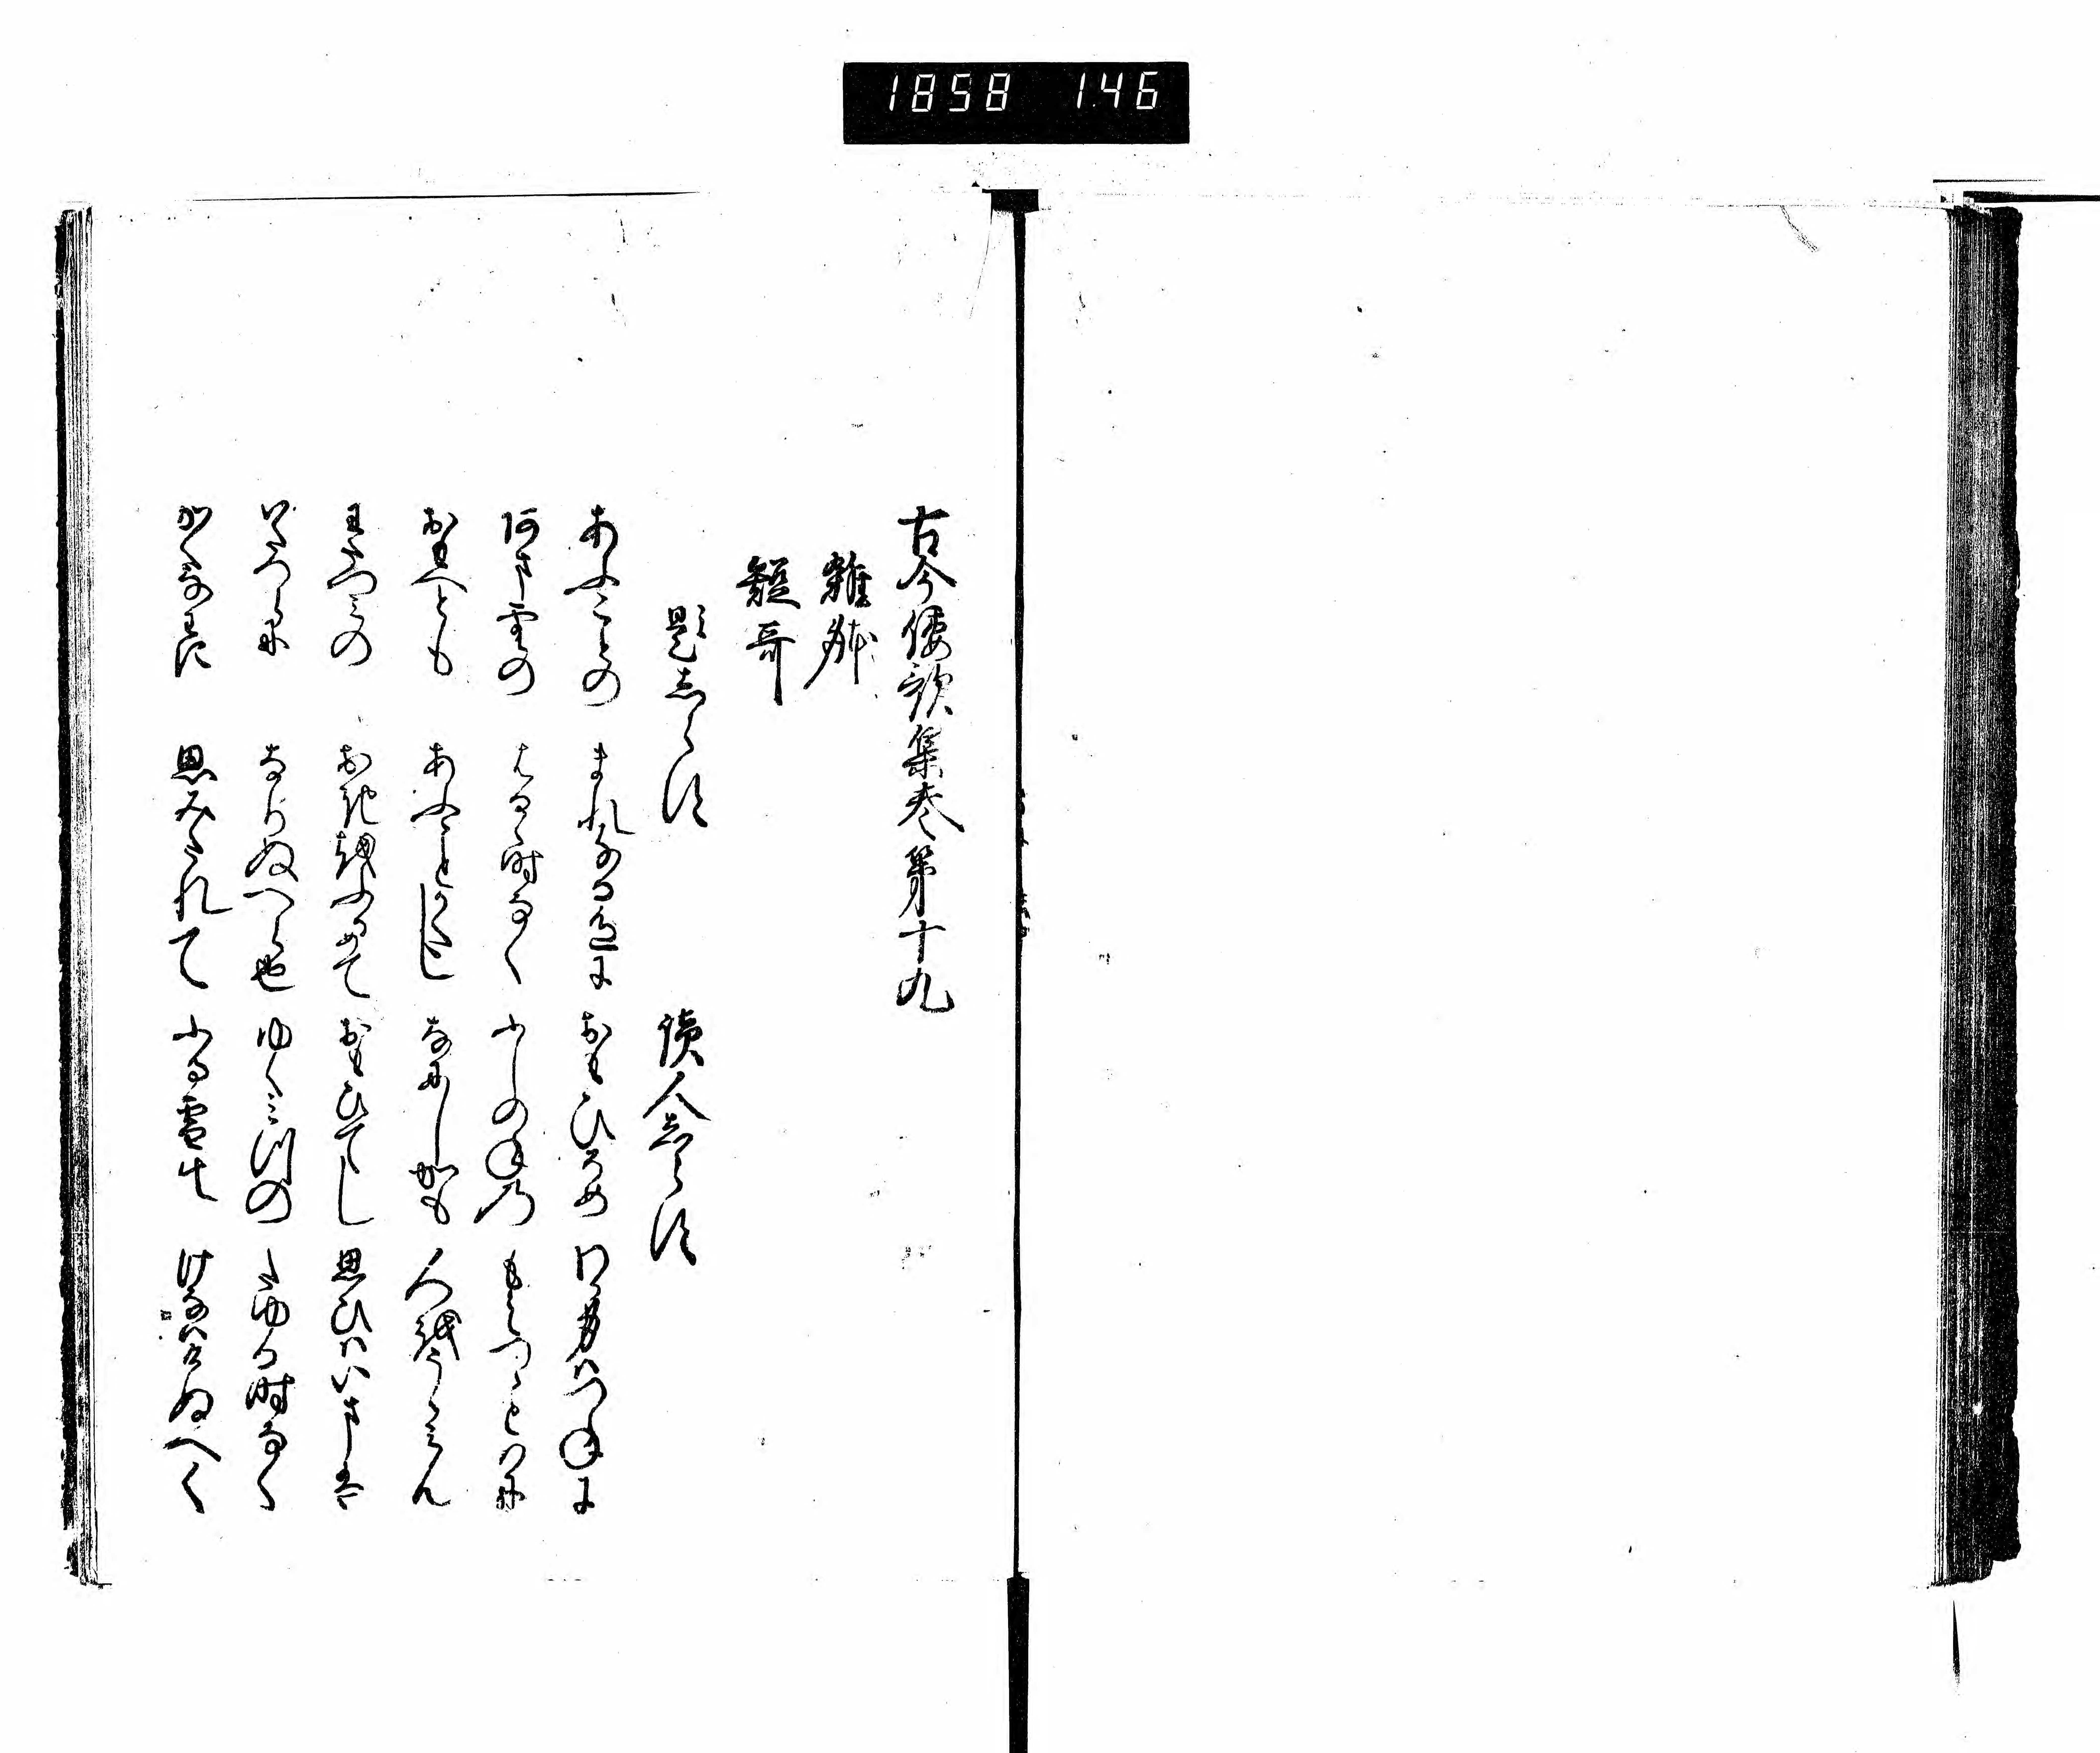 1858 146
古今倭歌集巻第十九
雑躰
短哥
題志らす
読人志らす
あふことの まれなる色に おもひそめ わか身はつねに
阿ま雲の はるゝ時なく ふしのねの もえつゝとはに
おもへとも あふことかたし なにしかも 人をうらみん
わたつみの おきをふかめて おもひてし 思ひはいまは
いたつらに なりぬへら也 ゆく水の たゆる時なく
かくなわに 思みたれて ふる雪の けなはけぬへく